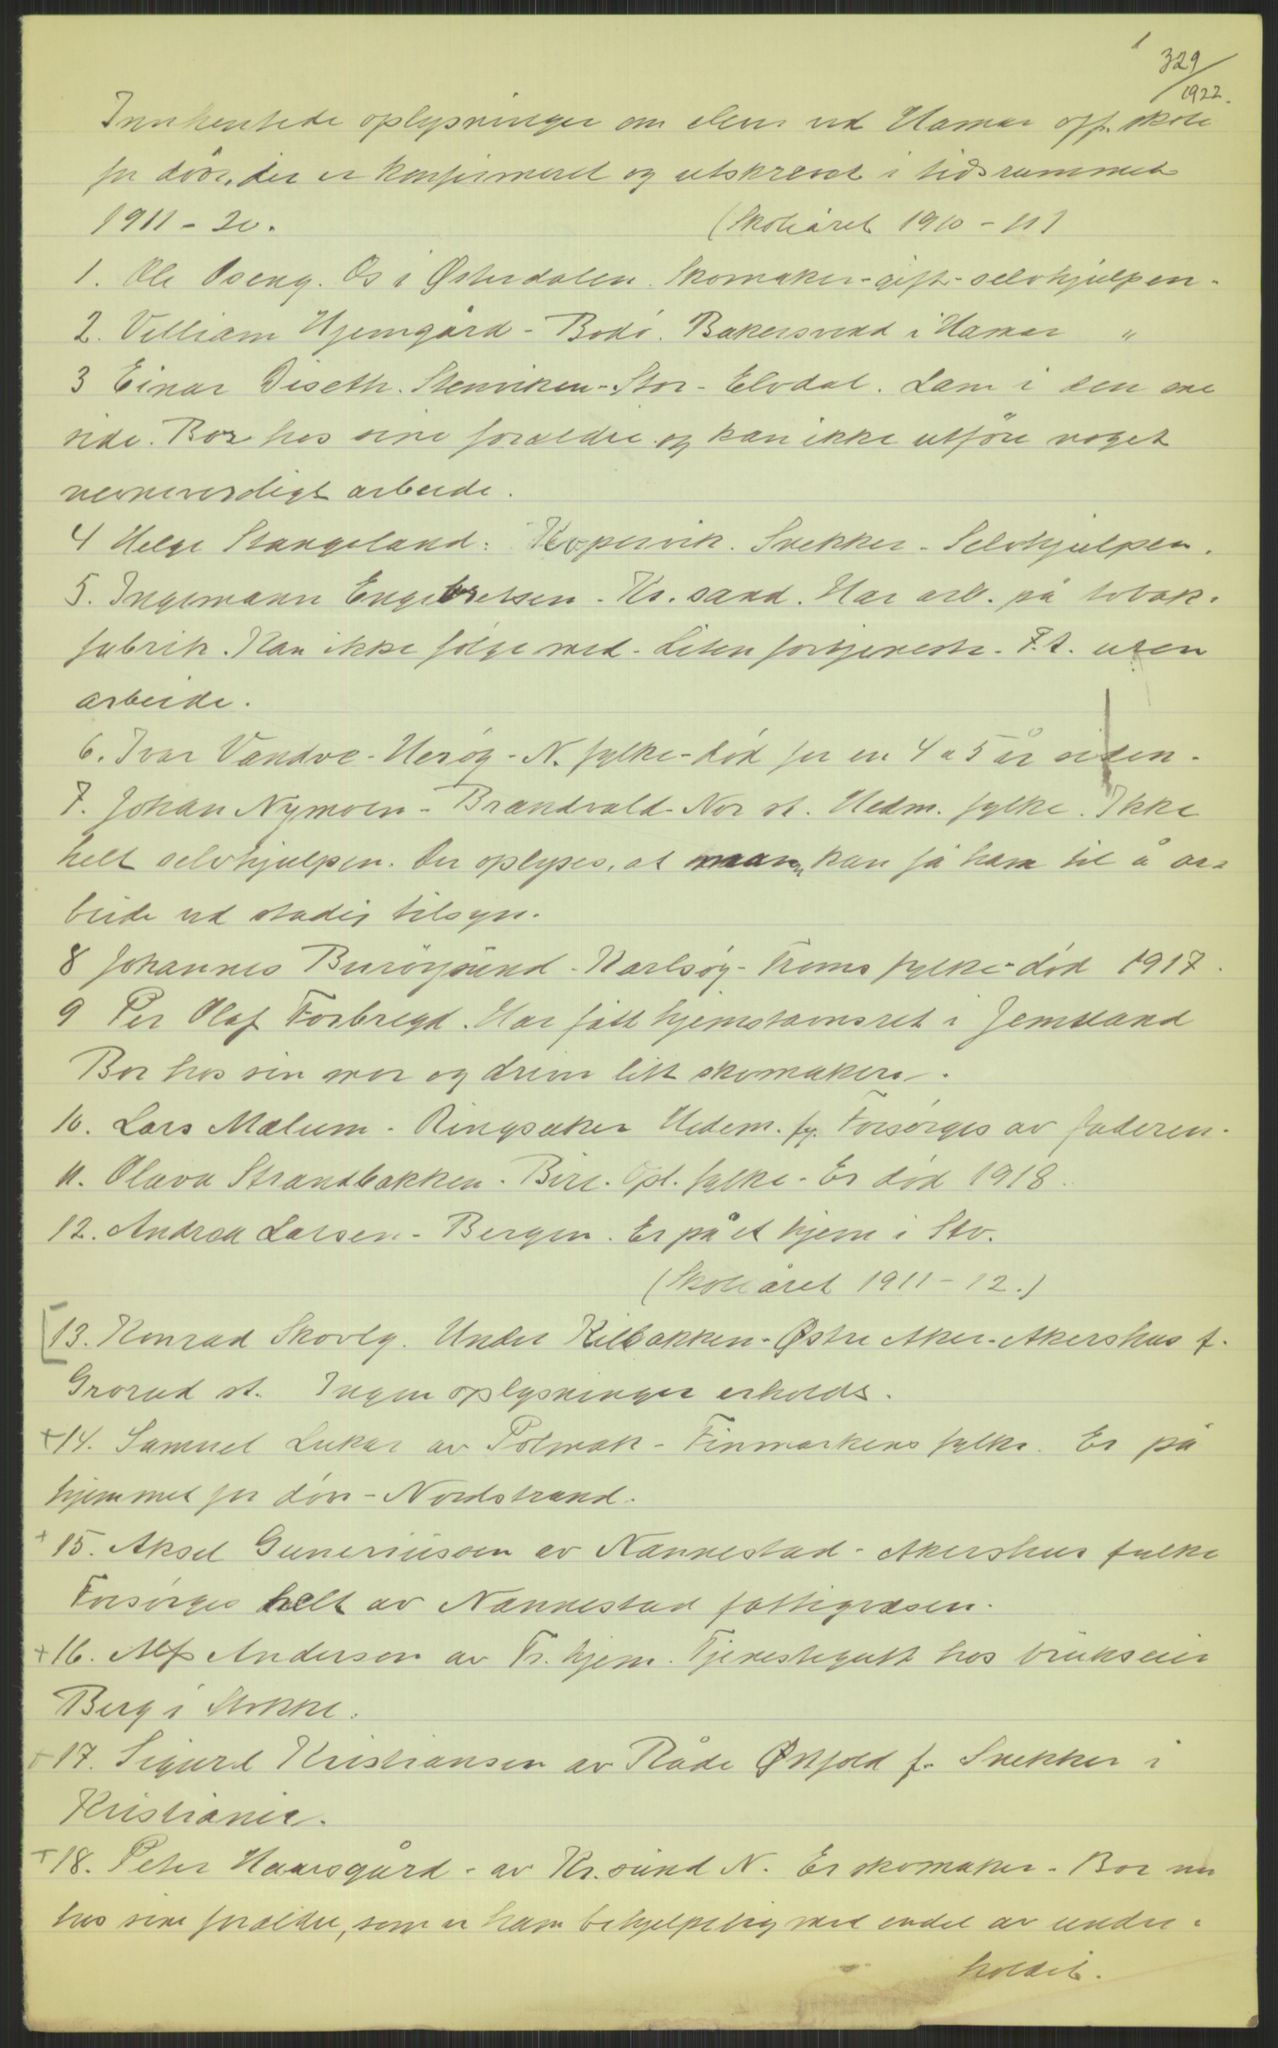 1
329/1922.
Innhentede oplysninger om elever ved Hamar off. skole
for døve, der er konfirmeret og utskrevet i tidsrummet
1911 - 20. (Skoleåret 1910 - 11)
1. Ole Oseng. Os i Østerdalen. Skomaker - gift - selvhjulpen.
2. Villiam Hjemgård - Bodö. Bakersvend i Hamar "
3 Einar Diseth. Stenviken - Stor - Elvdal. Lam i den ene
side. Bor hos sine foreldre og kan ikke utföre noget
nevneverdigt arbeide.
4 Helge Stangeland: Kopervik. Snekker - Selvhjulpen.
5. Ingemann Engebretsen - Kr. sand. Har arb. på tobak.
fabrik. Kan ikke fölge med. Liten fortjeneste. F.t. uten
arbeide.
6. Ivar Vandve - Heröy - N. fylke - död for en 4 a 5 år siden.
7. Johan Nymoen - Brandvald - Nor st. Hedm. fylke. Ikke
helt selvhjulpen. Der oplyses, at man kan få ham til å ar-
beide ved stadig tilsyn.
8 Johannes Buröysund - Karlsöy - Troms fylke - död 1917.
9 Per Olaf Forbregd. Har fått hjemstavnsret i Jemtland
Bor hos sin mor og driver litt skomakeri.
10. Lars Mælum - Ringsaker Hedem. fy. Forsörges av faderen.
11. Olava Strandbakken - Biri - Opl. fylke - Er död 1918.
12. Andrea Larsen - Bergen. Er på et hjem i Stv.
(Skoleåret 1911 - 12.)
13. Konrad Skovly. Under Kilbakken - Østre Aker - Akershus f.
Grorud st. Ingen oplysninger erholdt.
+ 14. Samuel Lukas av Polmak - Finmarkens fylke. Er på
hjemmet for döve - Nordstrand.
+ 15. Aksel Guneriussen av Nannestad - Akershus fylke
Forsörges helt av Nannestad fattigvæsen.
+ 16. Alf Andersen av Tr. hjem. Tjenestegutt hos brukseier
Berg i Stokke.
+ 17. Sigurd Kristiansen av Råde Østfold f. Snekker i
Kristiania.
+ 18. Peter Haarsgård - av Kr. sund N. Er skomaker - Bor nu
hos sine foreldre, som er ham behjelpelig med endel av under-
holdet.